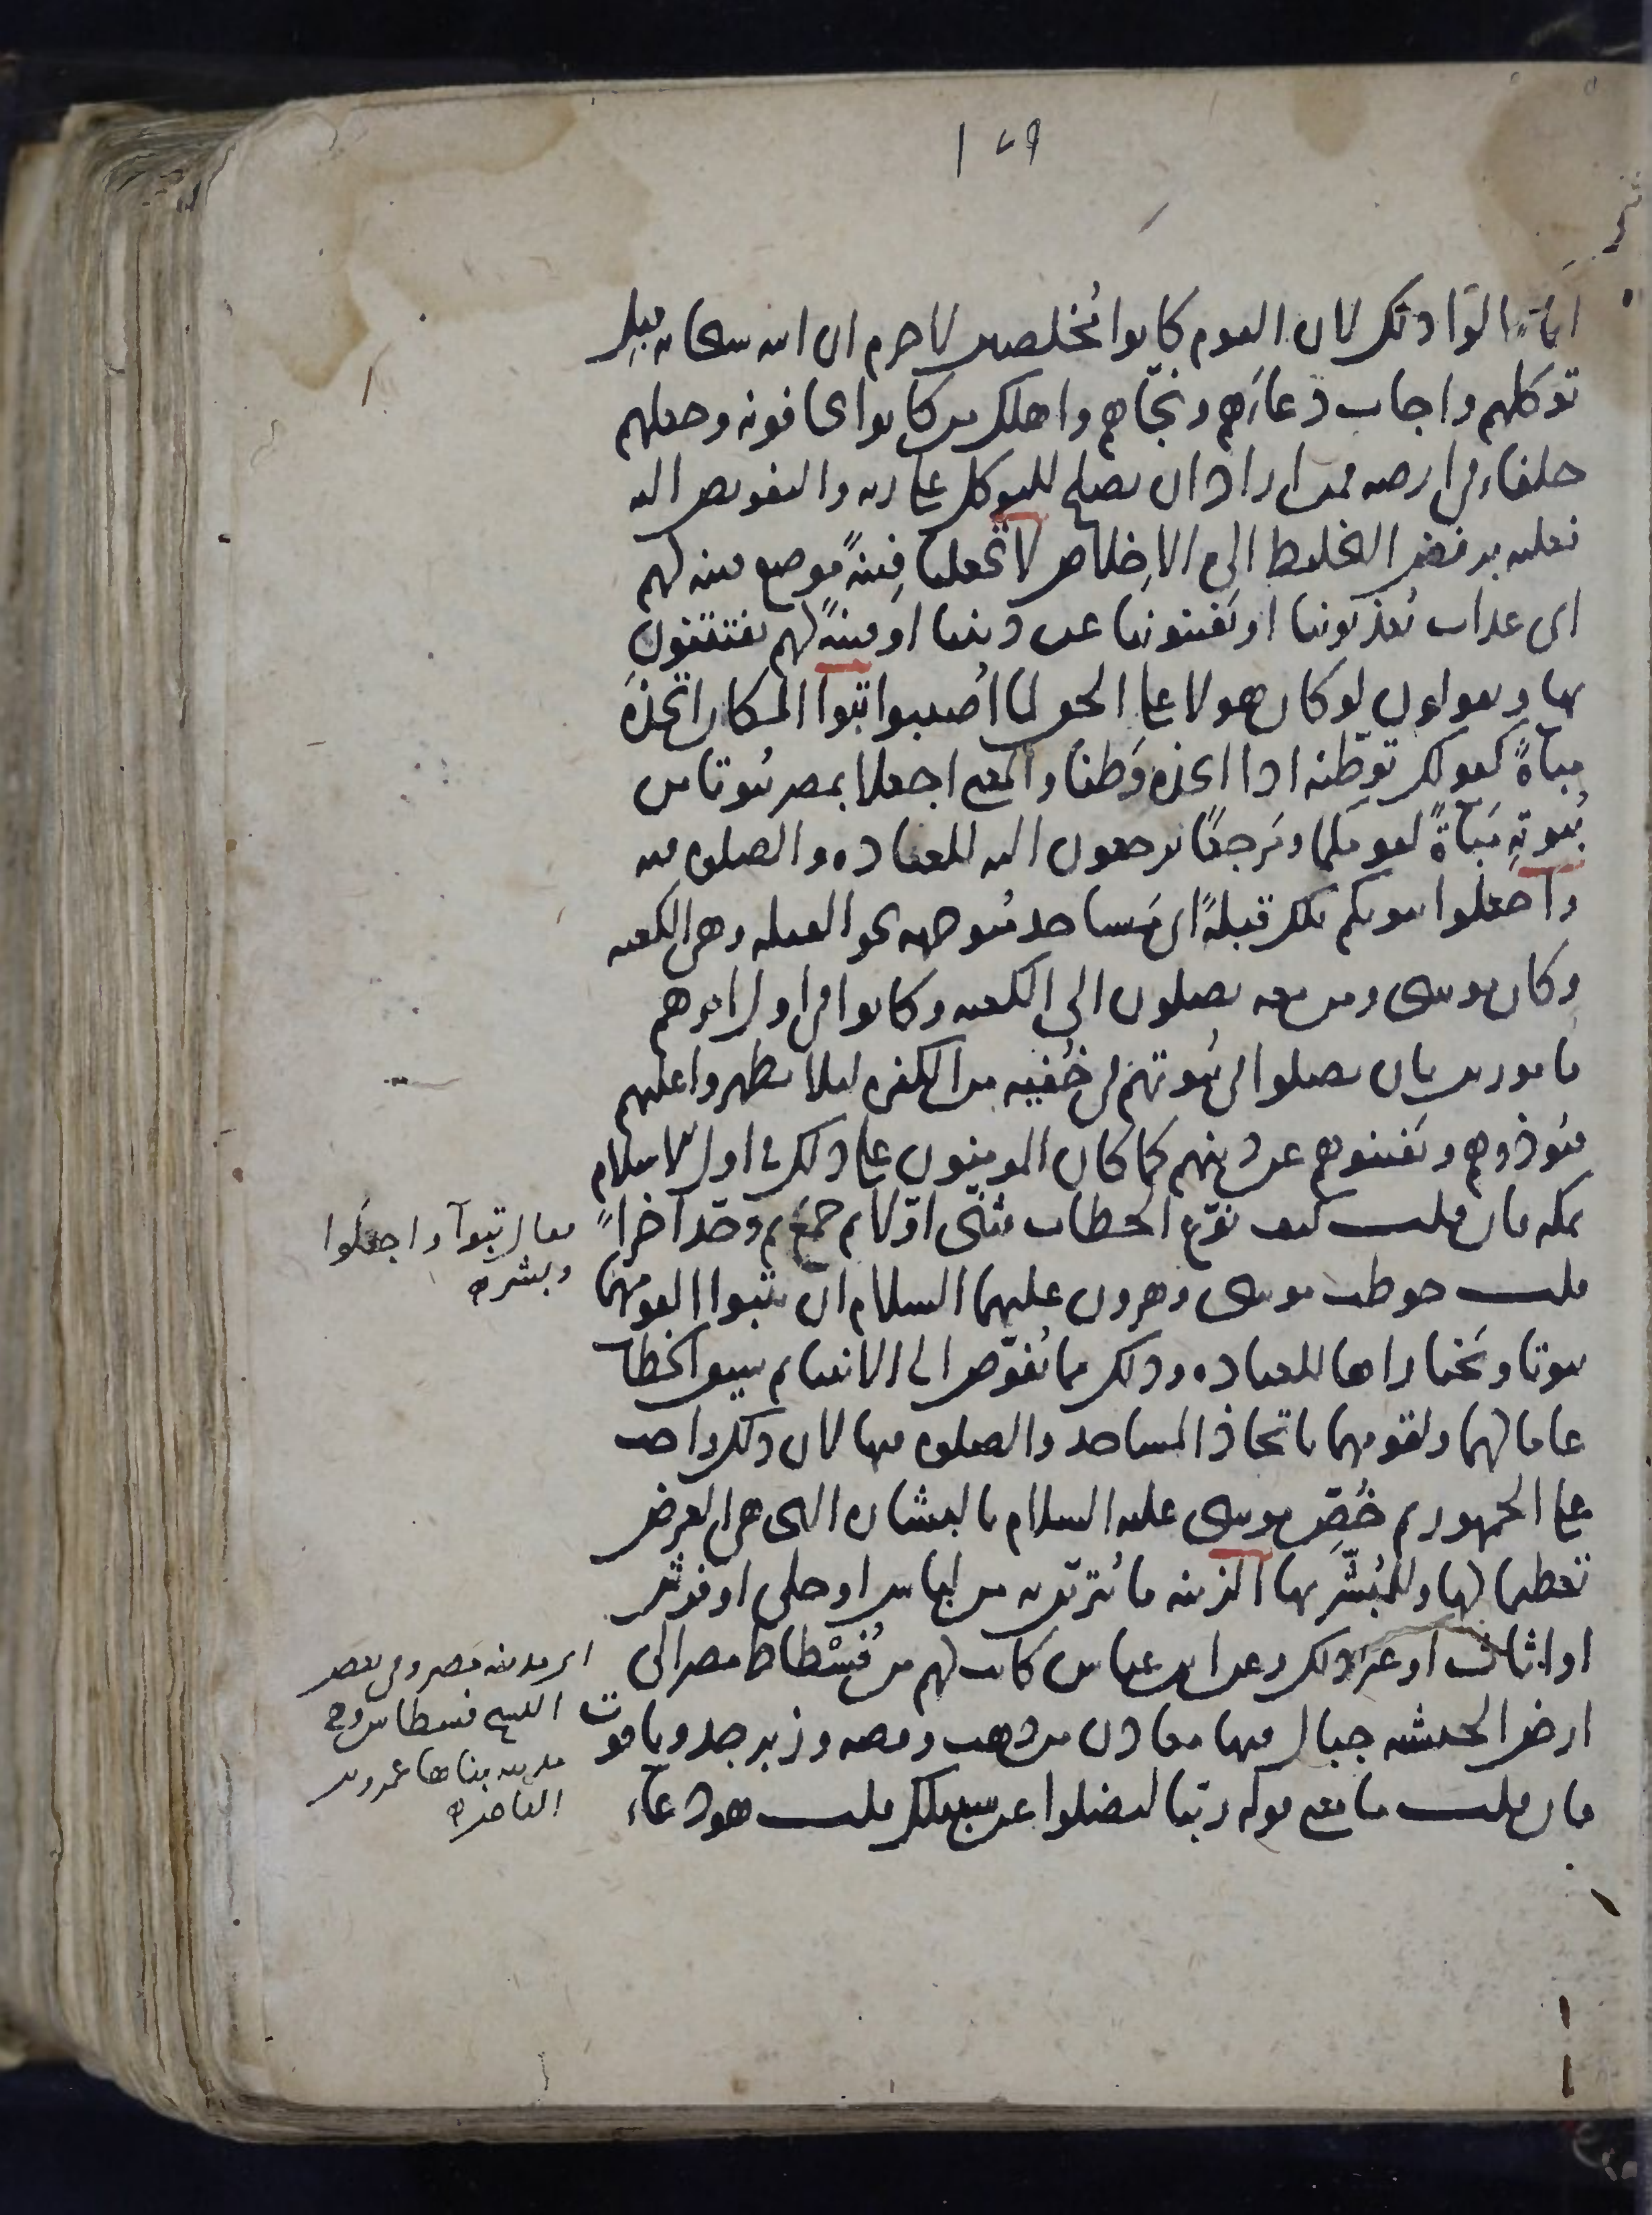 ١٧٩
انما قالوا ذلك لان القوم كانوا مُخلصين لا جرم ان الله سبحانه قبِل
توكلهم واجاب دعاءهم ونجّاهم واهلك من كانوا يخافونه وجعلهم
خلفاء في ارضه فمن اراد ان يصلح للتوكل على ربه والتفويض اليه
فعليه برفض التخليط الى الاخلاص لا تجعلنا فتنةً موضع فتنه لهم
اى عذاب يُعذبوننا او يَفتنوننا عن ديننا او فتنةً لهم يفتتنون
بها ويقولون لو كان هولا على الحق لما اُصيبوا تبوا المكان اتخذه
مباةً كقولك توطّنه اذا اتخذه وَطنا والمعنى اجعلا بمصر بُيوتا من
بُيوتِه مَباةً لقومكما ومَرجعًا يرجعون اليه للعباده والصلوه فيه
واجعلوا بيوتكم تلك قبلةً اى مَساجد متوجهه نحو القبله وهي الكعبه
وكان موسى ومن معه يصلون الى الكعبه وكانوا في اول امرهم
مامورين بان يصلوا في بُيوتهم في خُفيه من الكفره ليلا يظهروا عليهم
فيُوذوهم ويَفتنوهم عن دينهم كما كان المومنون على ذلك في اول الاسلام
بمكه فان قلت كيف نوّع الخطاب فثنّى اوّلا ثم جمَع ثم وحّد آخرًا
فقال تبوآ واجعلوا
وبشر
قلت خوطب موسى وهرون عليهما السلام ان يتبوا القومهما
بيوتا ويَختاراها للعباده وذلك مما يُفوّض الى الانبياء ثم سِيق الخطاب
عاما لهما ولقومهما باتخاذ المساجد والصلوه فيها لان ذلك واجب
على الجمهور ثم خُصّ موسى عليه السلام بالبشاره التى هي الغرض
تعظيما لها وللمُبشّر بها الزينه ما يُتزيّن به من لباس او حلى او فرش
او اثاث او غير ذلك وعن ابن عباس كانت لهم من فُسْطاط مصر الى
اى مدينه مصر وفي بعض
ارض الحبشه جبال فيها معادن من ذهب وفضه وزبرجد وياقوت
النسخ فسطاس وهي
مدينه بناها عمرو بن
فان قلت ما معنى قوله ربّنا ليضلوا عن سبيلك قلت هو دعاء
العاص